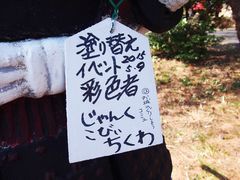 塗り替え
イベント 2015
5.9
彩色者
じゃんく
こびと
ちくわ